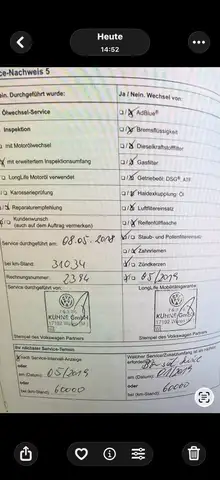 Heute
14:52
ce-Nachweis 5
in. Durchgeführt wurde:
Ja / Nein. Wechsel von:
Ölwechsel-Service
AdBlue®
Inspektion
Bremsflüssigkeit
mit Motorölwechsel
Dieselkraftstofffilter
mit erweitertem Inspektionsumfang
Gasfilter
LongLife Motoröl verwendet
Getriebeöl: DSG®
Karosserieprüfung
Haldexkupplung: Öl
Reparaturempfehlung
Luftfiltereinsatz
Kundenwunsch
(auch auf dem Auftrag vermerken)
Reifenfüllflasche
Staub- und Pollenfiltereinsatz
Service durchgeführt am: 08.05.2018
Zahnriemen
Zündkerzen
bei km-Stand:
05/2019
Rechnungsnummer:
Service durchgeführt von:
LongLife Mobilitätsgarantie
KÜHNE GmbH
17192 Waren
KÜHNE GmbH
17192 Waren
Stempel des Volkswagen Partners
Stempel des Volkswagen Partners
Ihr nächster Service-Termin:
nach Service-Intervall-Anzeige
oder
am (Datum): 05/2019
oder
bei (km-Stand): 60000
am (Datum):
oder
bei (km-Stand): 60000